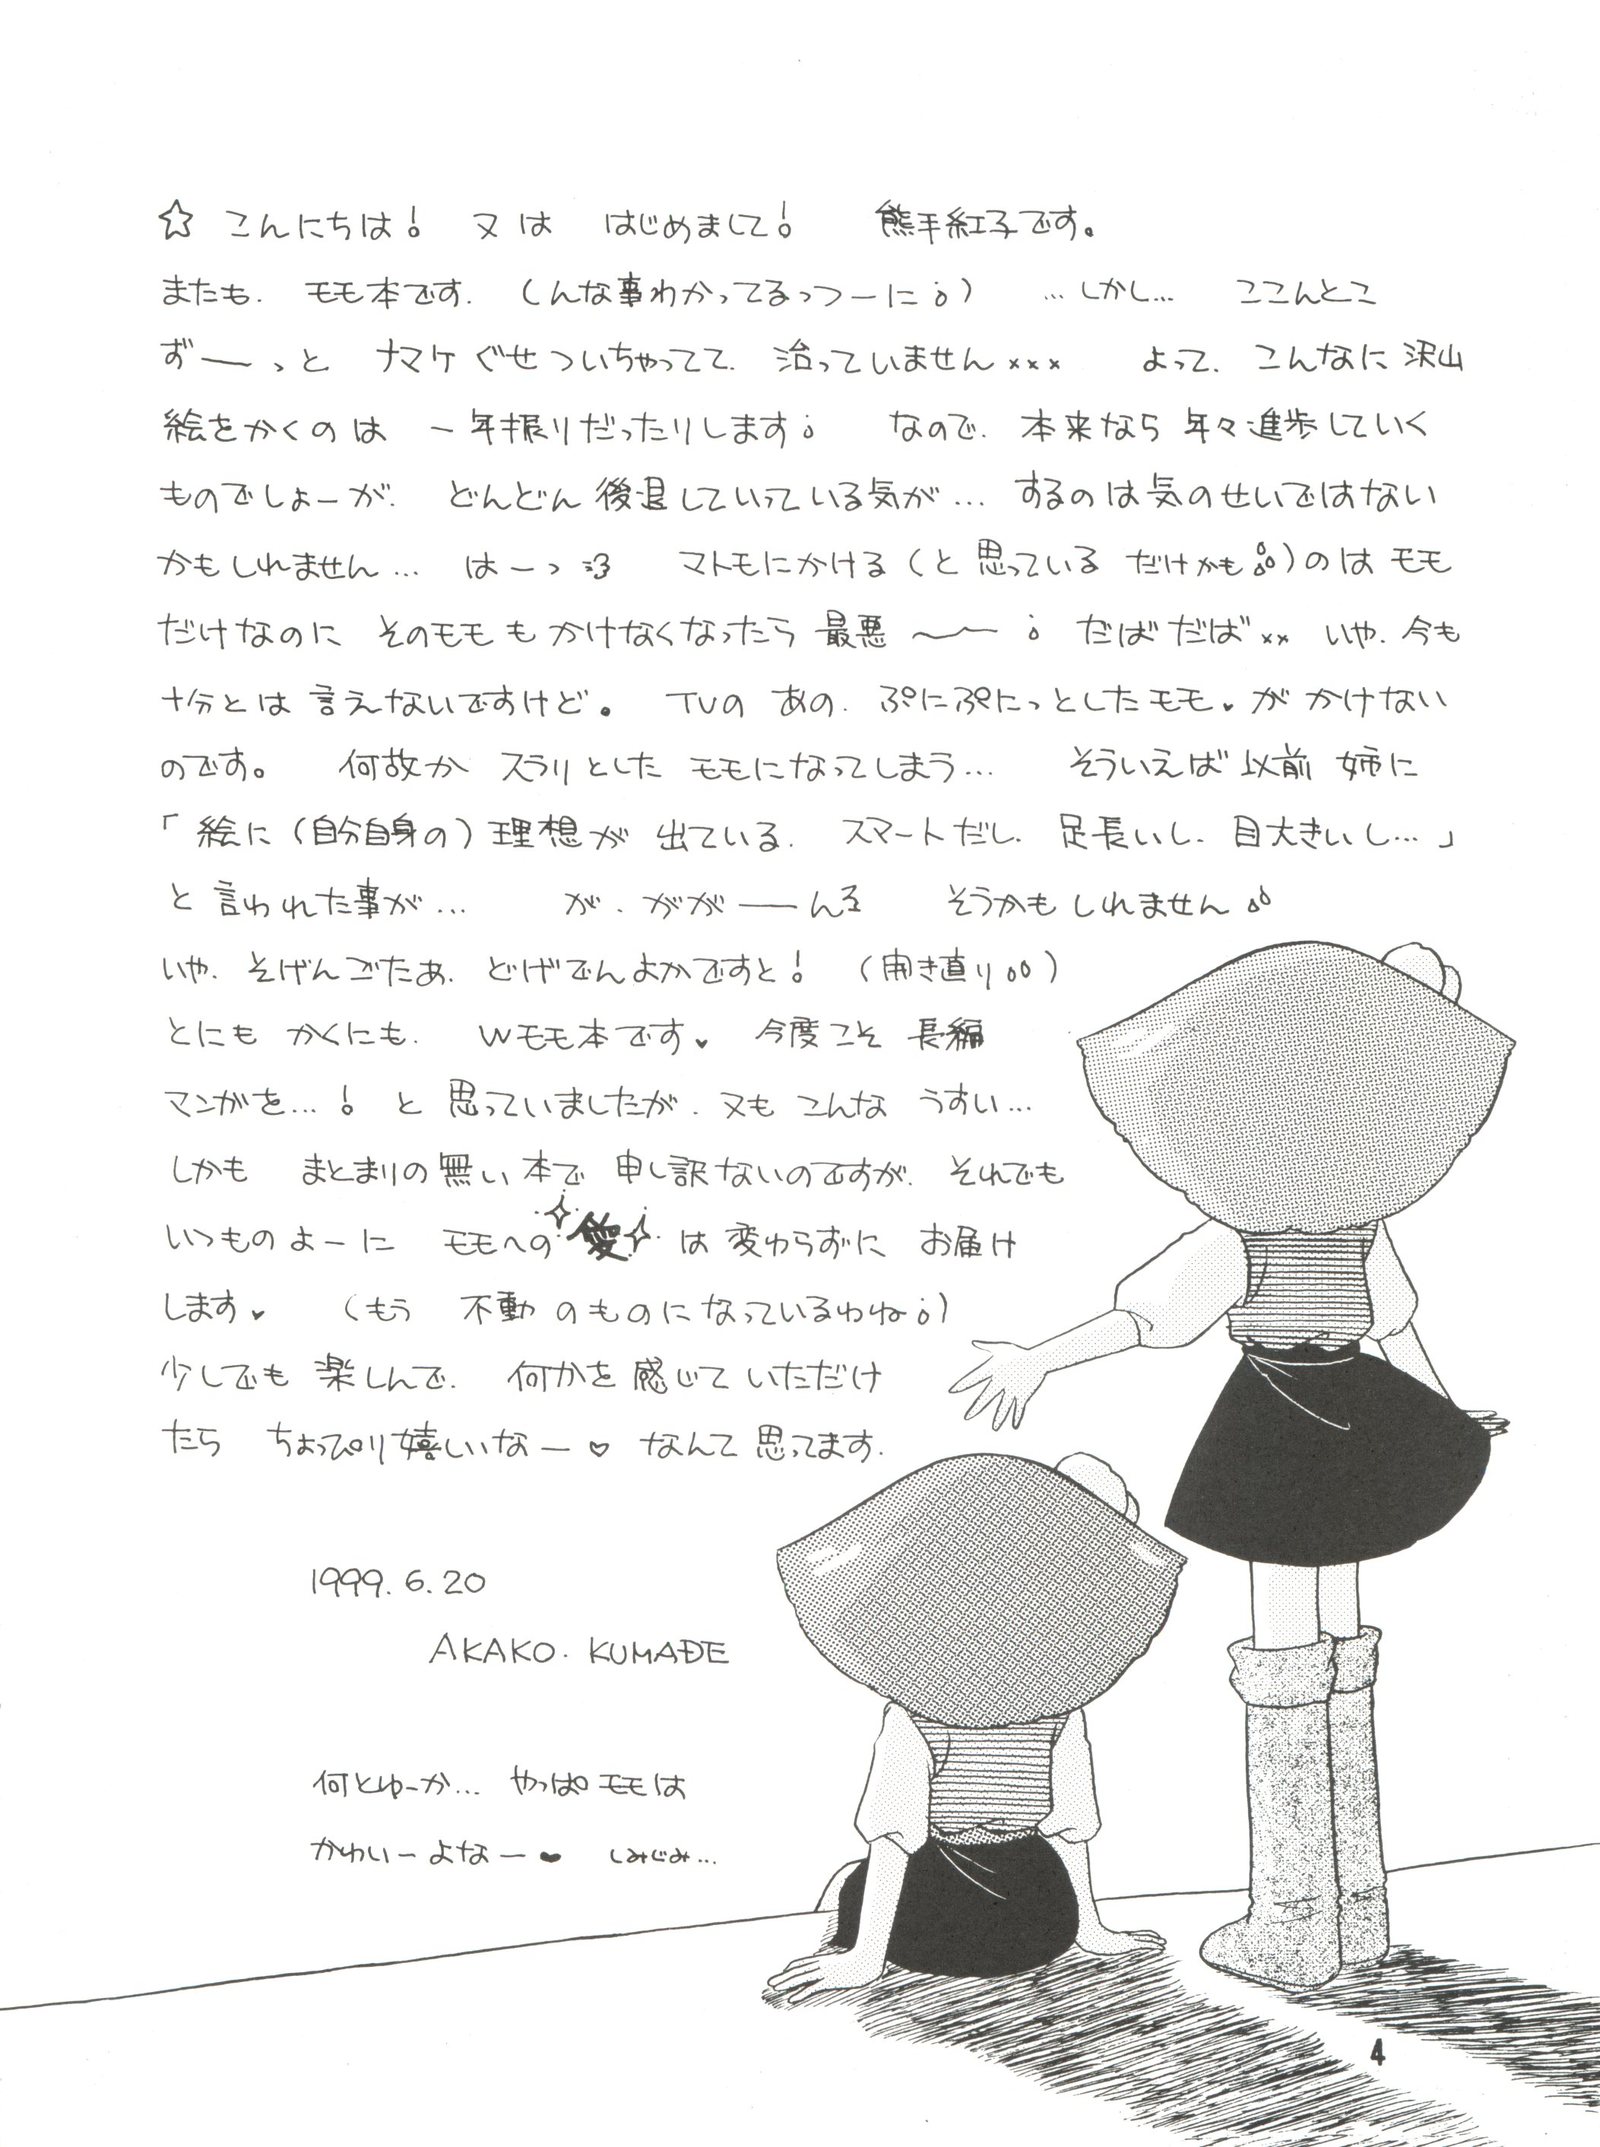 ☆ こんにちは! 又は はじめまして! 熊手紅子です。
またも、モモ本です。(んな事わかってるっつーに;) …しかし… ここんとこ
ず――っと ナマケぐせついちゃってて、治っていません××× よって、こんなに沢山
絵をかくのは 一年振りだったりします; なので、本来なら 年々進歩していく
ものでしょーが、どんどん後退していっている気が… するのは気のせいではない
かもしれません… はーっ マトモにかける(と思っている だけかも)のはモモ
だけなのに そのモモもかけなくなったら 最悪〜〜; だばだば×× いや、今も
十分とは言えないですけど。 TVの あの、ぷにぷにっとしたモモ♥がかけない
のです。 何故か スラリとした モモになってしまう… そういえば以前 姉に
「絵に(自分自身の)理想が出ている。スマートだし、足長いし、目大きいし…」
と言われた事が… が、がが――ん そうかもしれません
いや、そげんごたあ、どげでんよかですと! (開き直り)
とにも かくにも、Wモモ本です♥ 今度こそ 長編
マンガを…! と思っていましたが、又も こんな うすい…
しかも まとまりの無い本で 申し訳ないのですが、それでも
いつものよーに モモへの愛は変わらずに お届け
します♥ (もう 不動のものになっているわね;)
少しでも楽しんで、何かを感じていただけ
たら ちょっぴり嬉しいなー♡ なんて思ってます。
1999.6.20
AKAKO. KUMADE
何とゆーか… やっぱモモは
かわいーよなー♥ しみじみ…
4